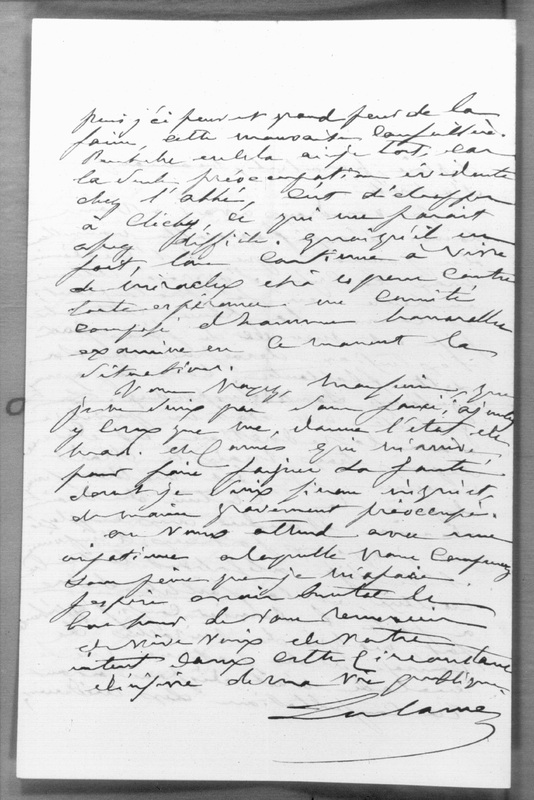 puis j'ai peur et grand peur de la
faim, cette mauvaise conseillère.
Peut être en cela ai-je tort, car
la seule préoccupation évidente
chez l'abbé, c'est d'échapper
à Clichy, ce qui me parait
assez difficile. Quoiqu'il en
soit, l'on continue à vivre
de miracles et à espérer contre
toute espérance. un comité
composé d'hommes honorables
examine en ce moment la
situation.
Vous voyez, Monsieur, que
je ne suis pas sans souci; ajoutez
y ceux que me donne l'état de
Mad. de qui m'arrive
pour faire soigner sa santé
dont je suis sinon inquiet,
du moins gravement préoccupé.
on vous attend avec une
impatience à laquelle vous comprenez
sans peine que je m'associe.
J'espère avoir bientot le
bonheur de vous remercier
de vive voix de votre
dans cette Circonstance
de ma vie publique.